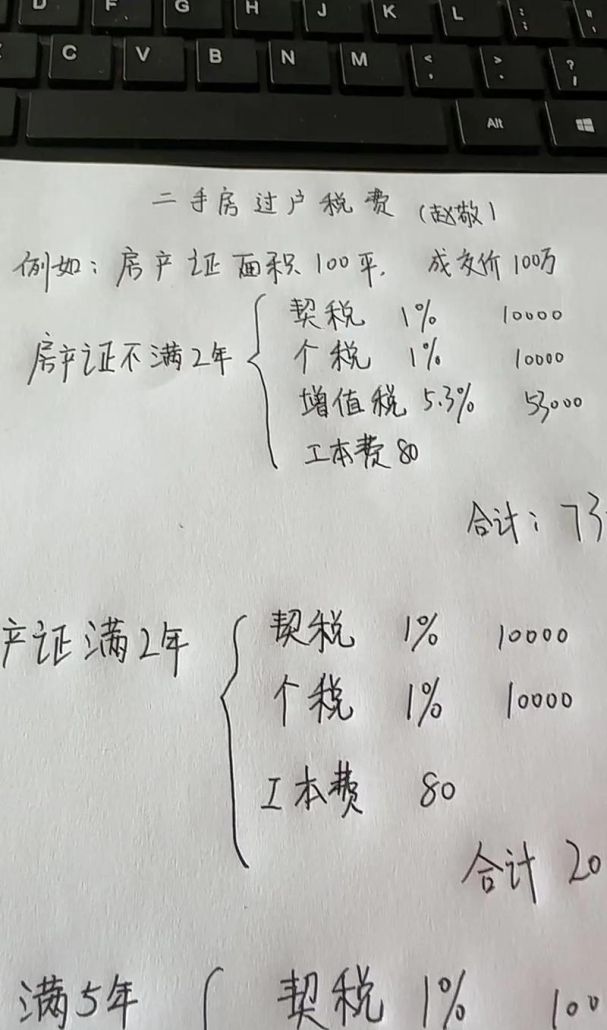 D F G H J K L : ;
C V B N M < , > . ? /
Alt
二手房过户税费 (赵敬)
例如：房产证面积100平, 成交价100万
房产证不满2年
契税 1% 10000
个税 1% 10000
增值税 5.3% 53000
工本费 80
合计：73
产证满2年
契税 1% 10000
个税 1% 10000
工本费 80
合计 20
满5年
契税 1% 100